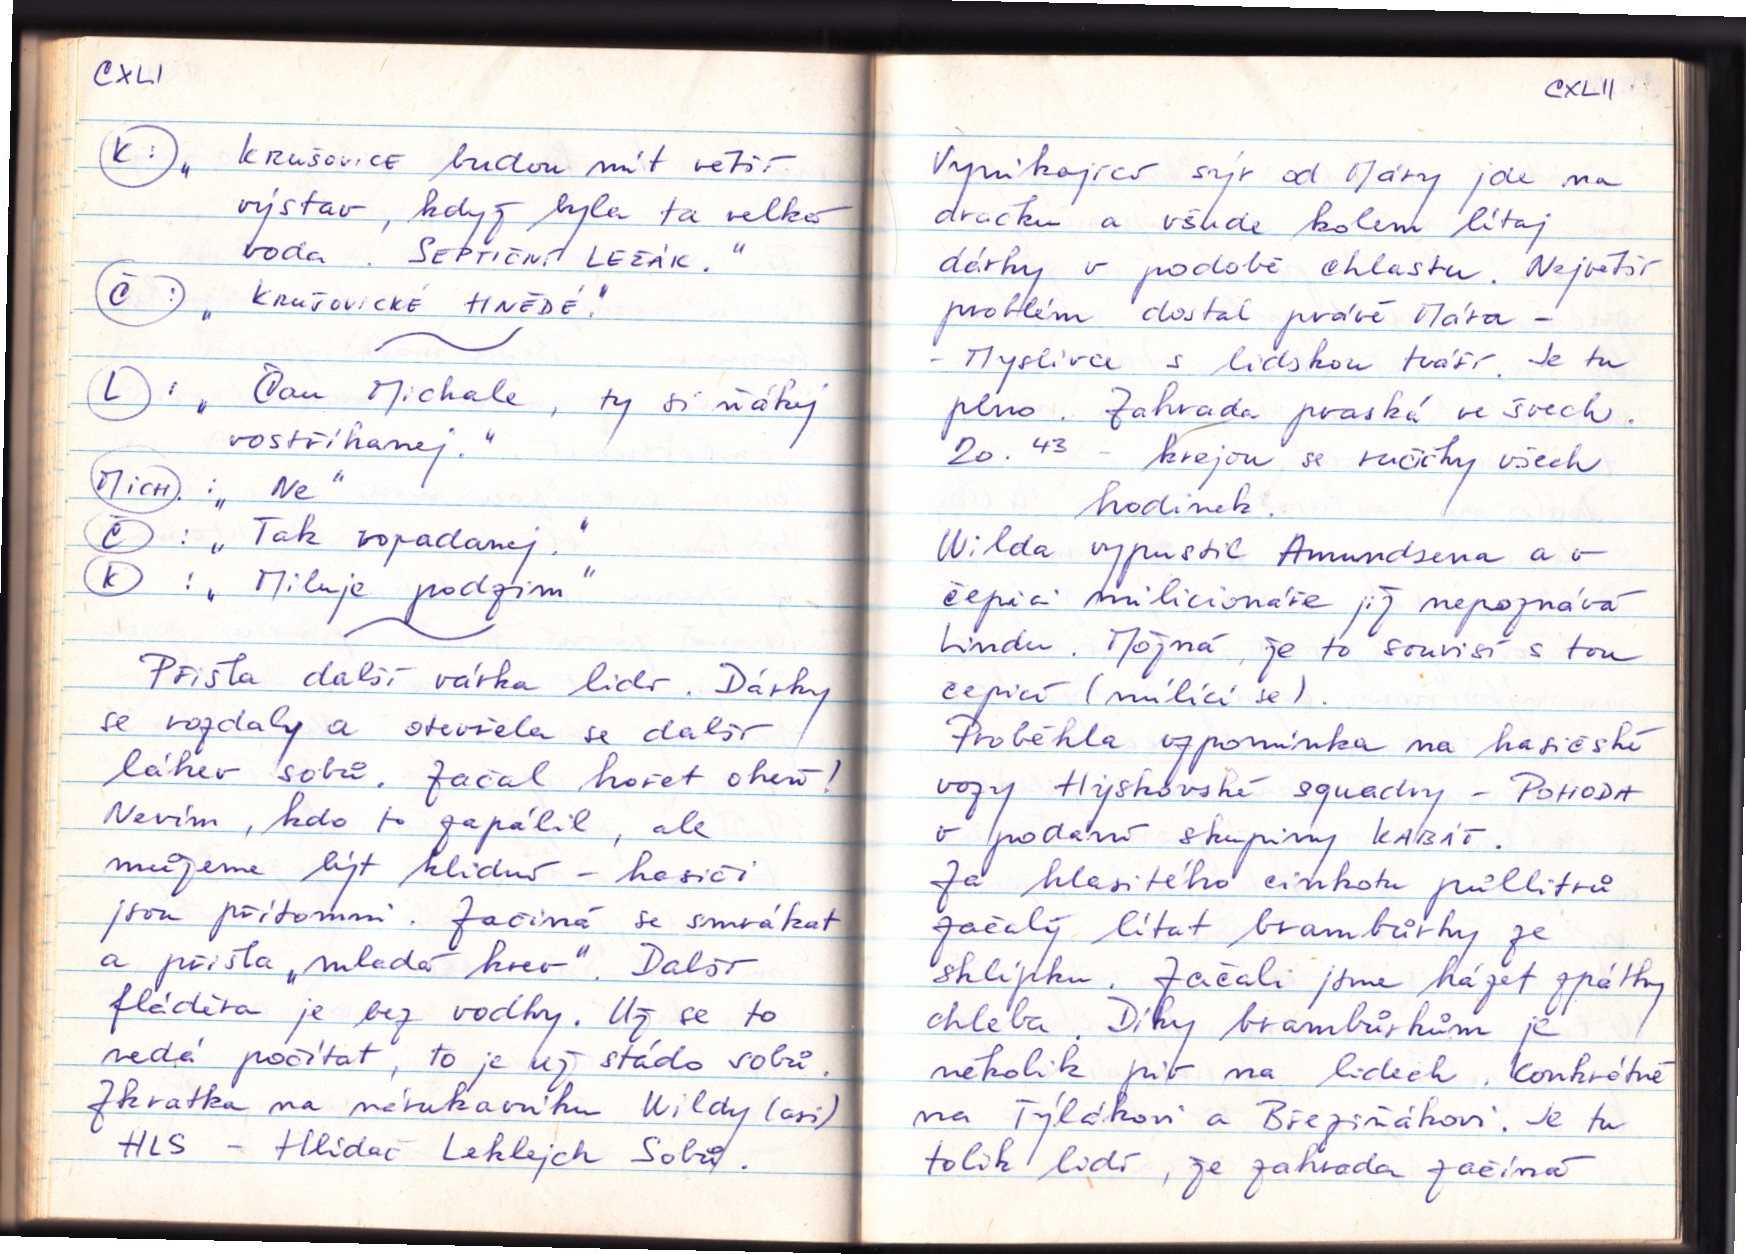 CXLI
K: „ KRUŠOVICE budou mít větší
výstav, když byla ta velká
voda. SEPTIČNÍ LEŽÁK."
Č: „ KRUŠOVICKÉ HNĚDÉ."
L: „ Čau Michale, ty si ňákej
vostříhanej."
MICH.: „ Ne"
Č: „ Tak vopadanej."
K: „ Miluje podzim"
Přišla další várka lidí. Dárky
se rozdaly a otevřela se další
láhev sobů. Začal hořet oheň!
Nevím, kdo to zapálil, ale
můžeme být klidní – hasiči
jsou přítomni. Začíná se smrákat
a přišla „mladá krev". Další
fláděra je bez vodky. Už se to
nedá počítat, to je už stádo sobů.
Zkratka na nárukavníku Wildy (asi)
HLS – Hlídač Leklejch Sobů.
CXLII
Vynikající sýr od Máry jde na
dračku a všude kolem lítaj
dárky v podobě chlastu. Největší
problém dostal právě Mára –
– Myslivce s lidskou tváří. Je tu
plno. Zahrada praská ve švech.
20.43 – krejou se ručičky všech
hodinek.
Wilda vypustil Amundsena a v
čepici milicionáře již nepoznává
Lindu. Možná, že to souvisí s tou
čepicí (milicí se).
Proběhla vzpomínka na hasičské
vozy Hýskovské squadry – POHODA
v podání skupiny KABÁT.
Za hlasitého cinkotu půllitrů
začaly lítat brambůrky ze
sklípku. Začali jsme házet zpátky
chleba. Díky brambůrkům je
několik piv na lidech. Konkrétně
na Týlákovi a Březiňákovi. Je tu
tolik lidí, že zahrada začíná